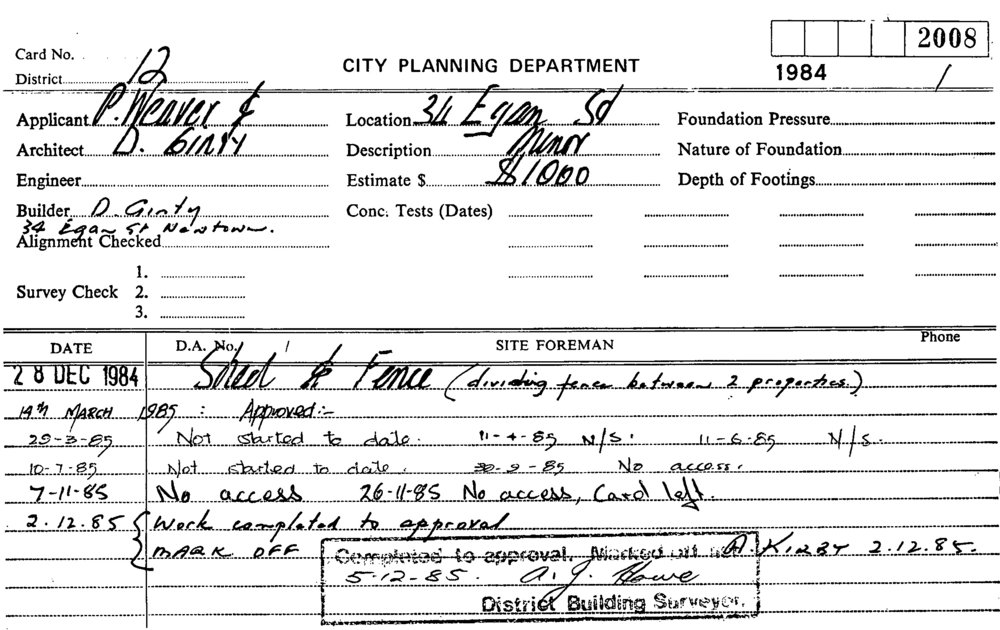 2008
Card No. 12
CITY PLANNING DEPARTMENT
1984 /
District
Applicant P. Weaver &
Location 34 Egan St
Foundation Pressure
Architect D. GINTY
Description Minor
Nature of Foundation
Engineer
Estimate $ $1000
Depth of Footings
Builder D. Ginty
Conc. Tests (Dates)
34 Egan St Newtown.
Alignment Checked
1.
Survey Check 2.
3.
DATE D.A. No. / SITE FOREMAN Phone
28 DEC 1984 Shed & Fence (dividing fence between 2 properties.)
19th MARCH 1985 : Approved:-
29-3-85 Not started to date. 11-4-85 N/S. 11-6-85 N/S.
10-7-85 Not started to date. 30-9-85 No access.
7-11-85 No access 26-11-85 No access, Card left.
2.12.85 { Work completed to approval
MARK OFF A. KIRBY 2.12.85.
Completed to approval. Marked off
5-12-85. A. J. Howe
District Building Surveyor.